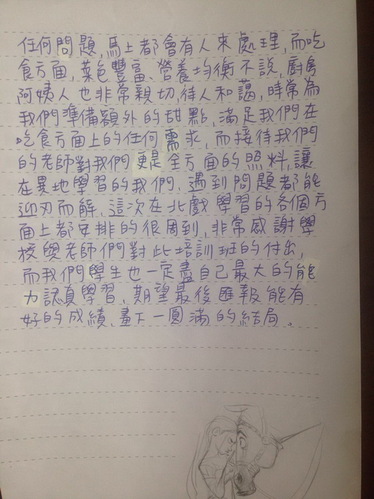 任何問題,馬上都會有人來處理,而吃
食方面,菜色豐富、營養均衡不說,廚房
阿姨人也非常親切,待人和藹,時常為
我們準備額外的甜點,滿足我們在
吃食方面上的任何需求,而接待我們
的老師對我們更是全方面的照料,讓
在異地學習的我們,遇到問題都能
迎刃而解,這次在北戲學習的各個方
面上都安排的很周到,非常感謝學
校與老師們對此培訓班的付出,
而我們學生也一定盡自己最大的能
力認真學習,期望最後匯報能有
好的成績,畫下一圓滿的結局。